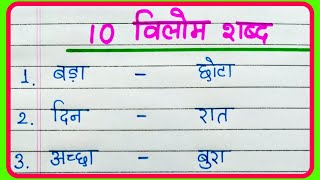 10 विलोम शब्द
1. बड़ा – छोटा
2. दिन – रात
3. अच्छा – बुरा